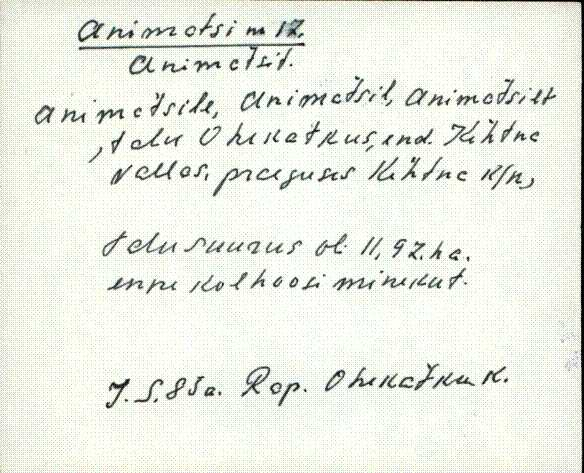 Animatsi m 12.
Animatsit.
Animatsile, Animatsil, Animatsilt
, talu Ohekatkus, end. Kehtna
vallas, praeguses Kehtna k/n,
talu suurus oli 11,92. ha.
enne kolhoosi minekut.
J. S. 85a. Rap. Ohekatku k.